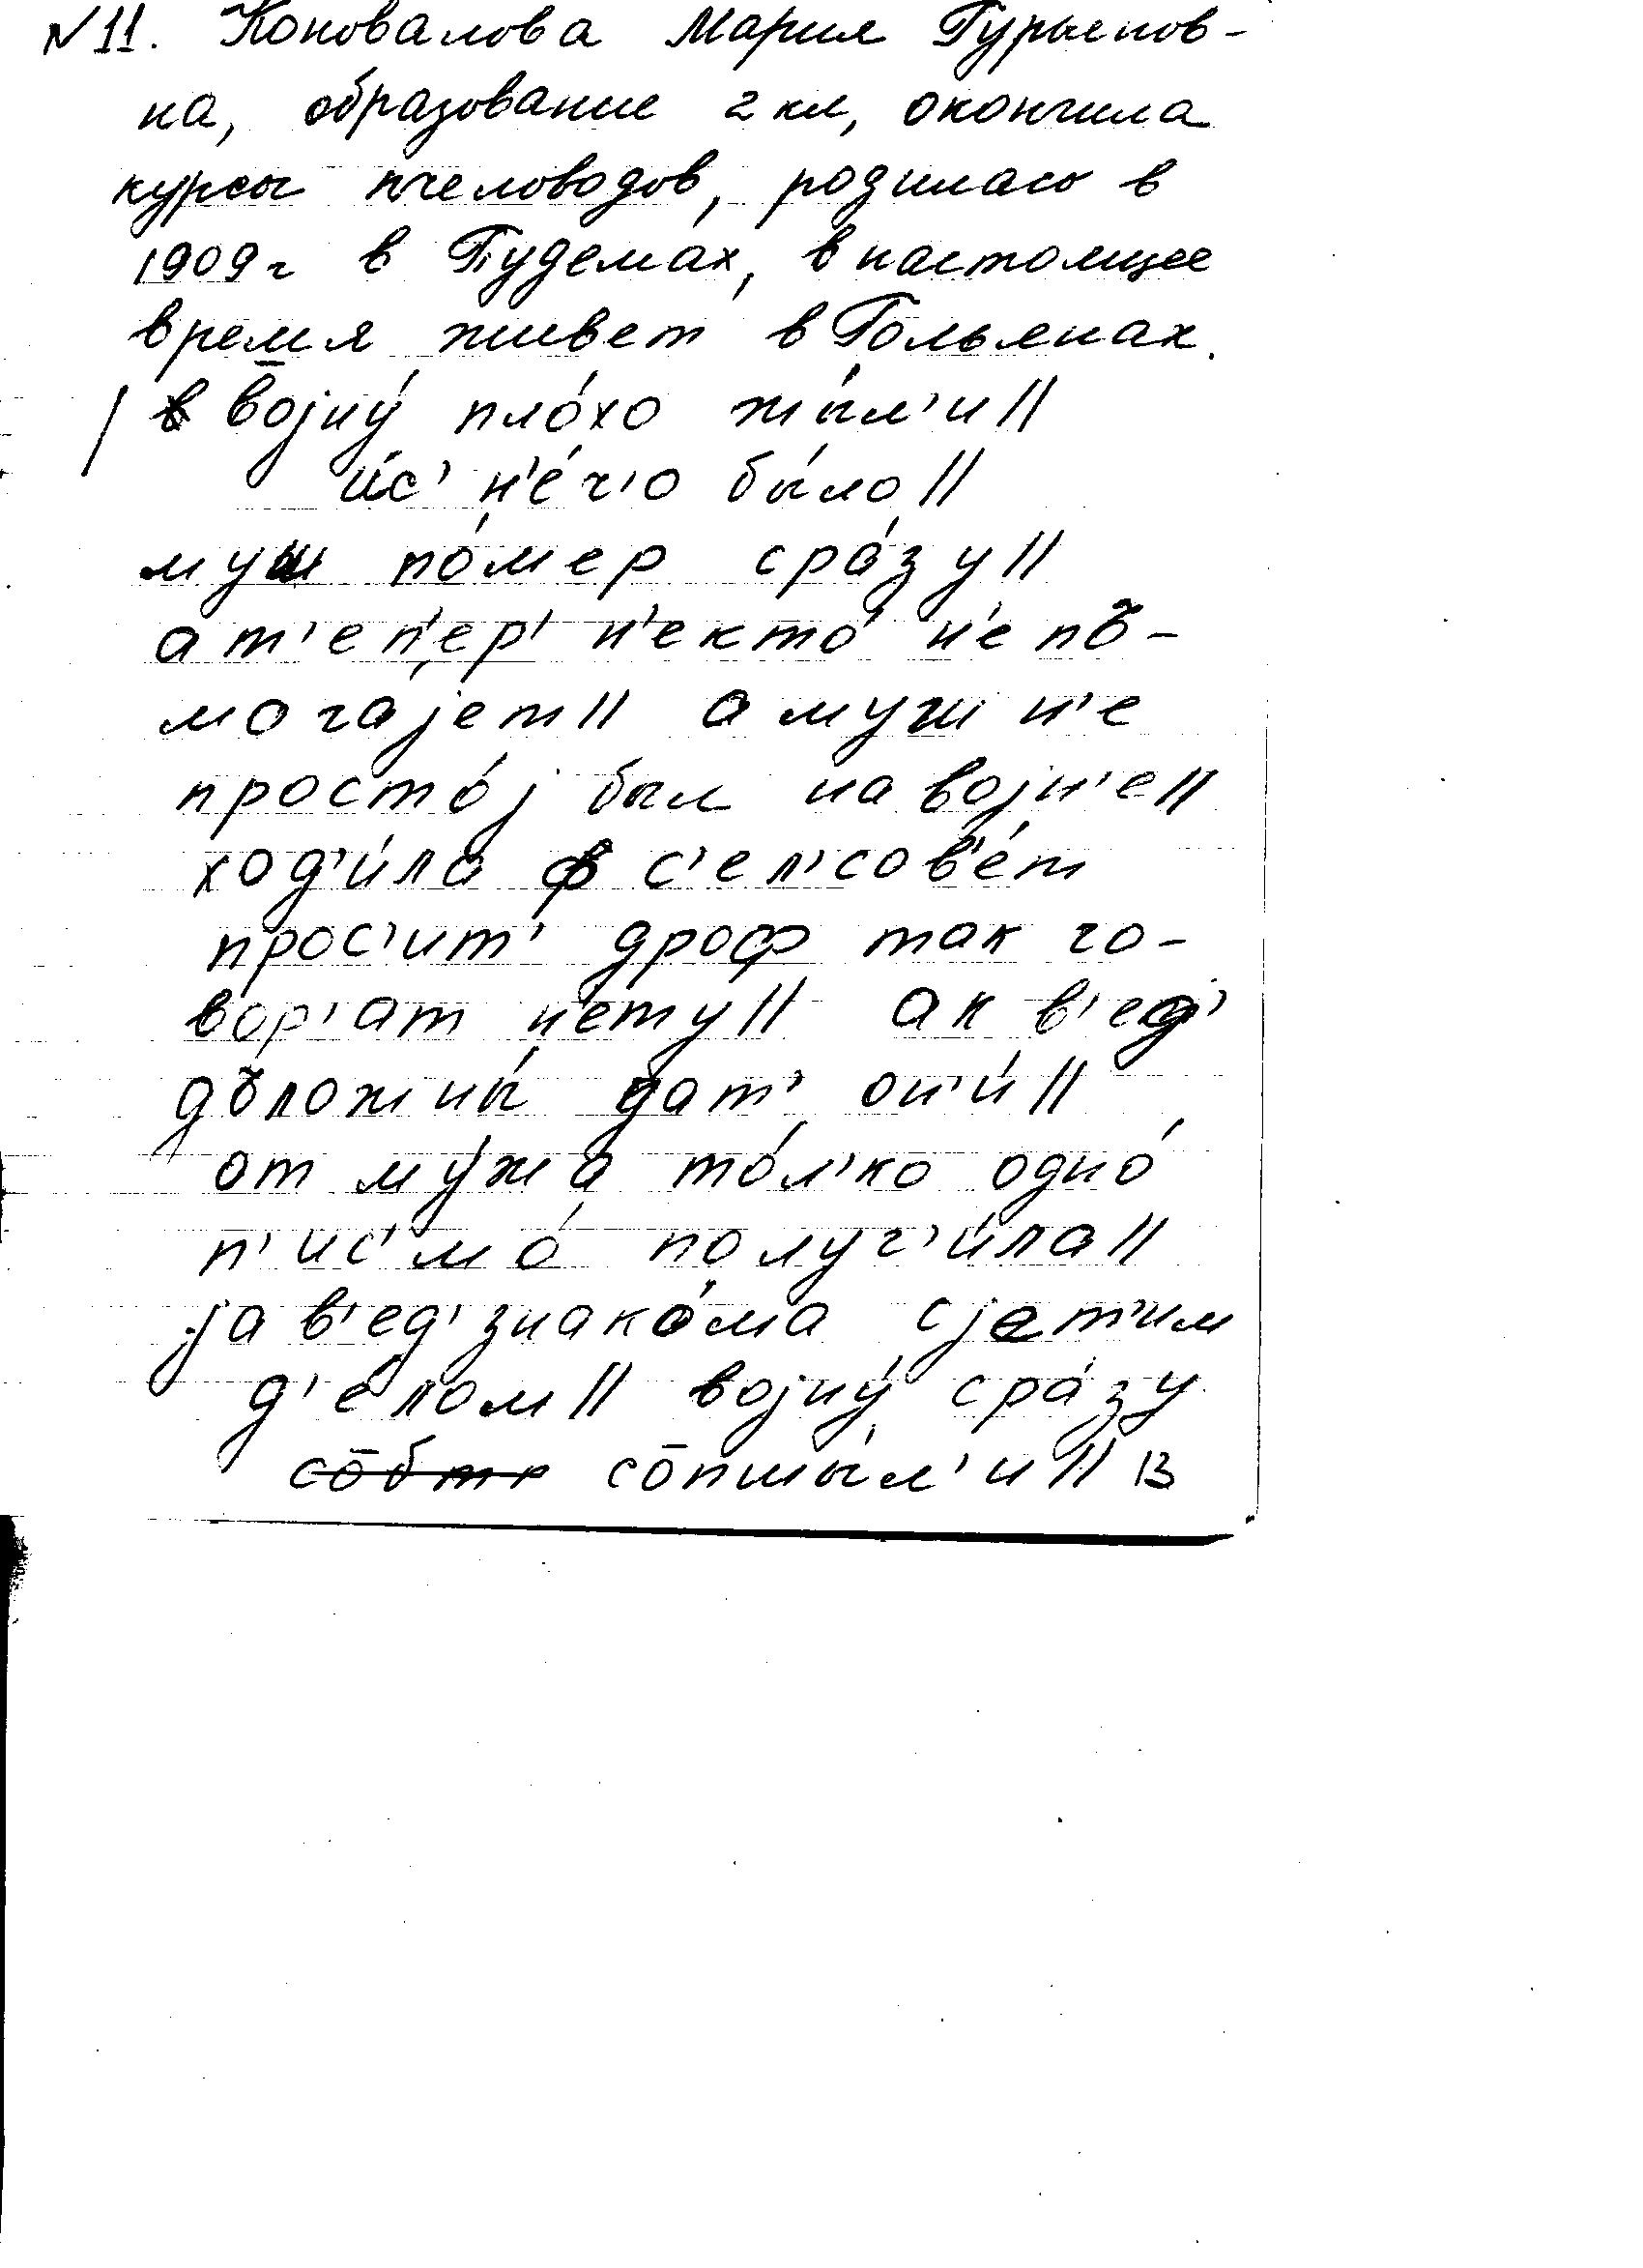 № 11. Коновалова Мария Гурьенов-
на, образование 2 кл, окончила
курсы пчеловодов, родилась в
1909 г в Пудемах, в настоящее
время живет в Гольенах.
в̄ојну́ пло́хо жы́л'и ||
и́с' н'е́ч'о бы́ло ||
муш по́мер сра́зу ||
а т'еп'ер' н'екто́ н'е пъ-
могајет || а муш н'е
просто́ј был на војн'е ||
ход'и́ла ф с'ел'сов'е́т
прос'ит' дроф так го-
вор'ат н'ету || ак в'ед'
дъложны́ дат' он'и́ ||
от му́жа то́л'ко одно́
п'ис'мо́ получ'и́ла ||
ја в'ед' знако́ма сјет'им
д'е́лом || војну́ сра́зу
со̄бт со̄пшы́л'и || 13